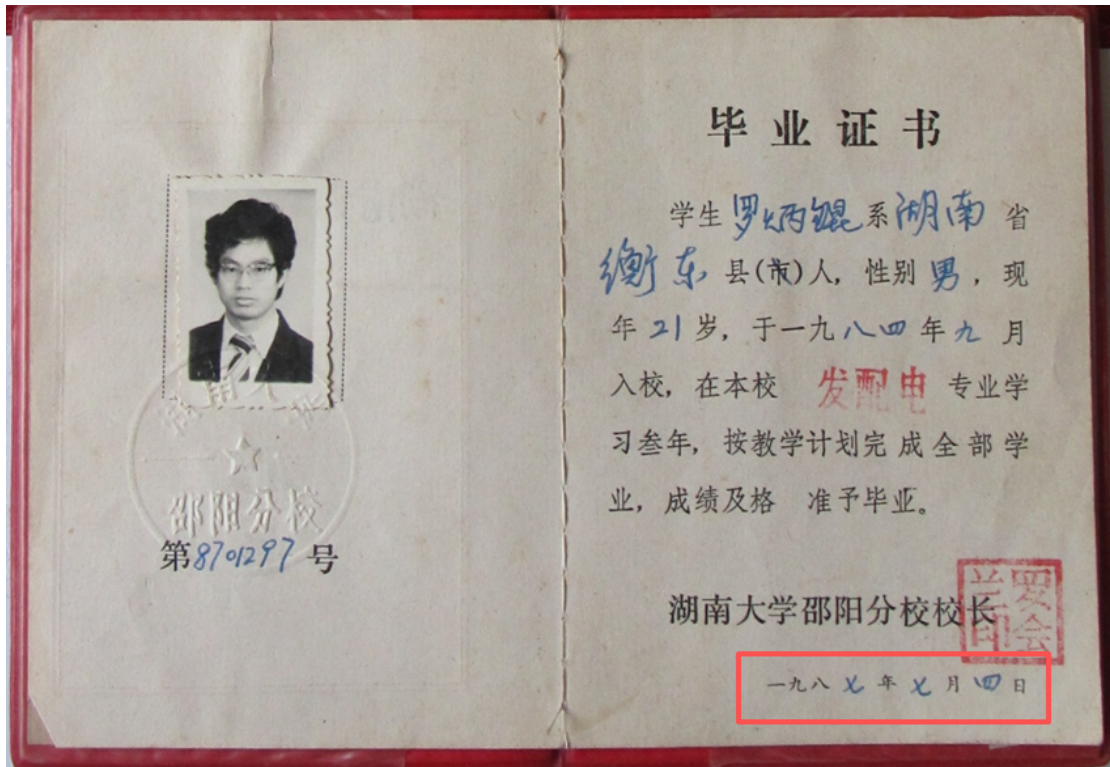 湖南大学
邵阳分校
第8701297号
毕业证书
学生罗炳锟系湖南省
衡东县(市)人，性别男，现
年21岁，于一九八四年九月
入校，在本校 发配电 专业学
习叁年，按教学计划完成全部学
业，成绩及格 准予毕业。
湖南大学邵阳分校校长
罗会兰印
一九八七年七月四日